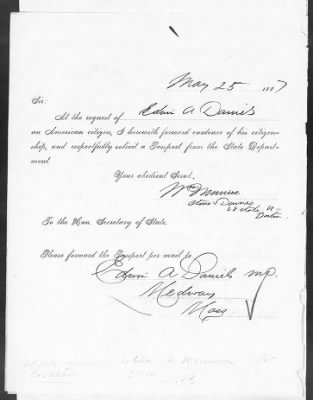 May 25 1887
Sir:
At the request of Edwin A Daniels
an American citizen, I herewith forward evidence of his citizen-
ship, and respectfully solicit a Passport from the State Depart-
ment.
Your obedient Servt.
Wm
State St
Boston
To the Hon. Secretary of State.
Please forward the Passport per mail to
Edwin A Daniels MD.
Medway
Mass